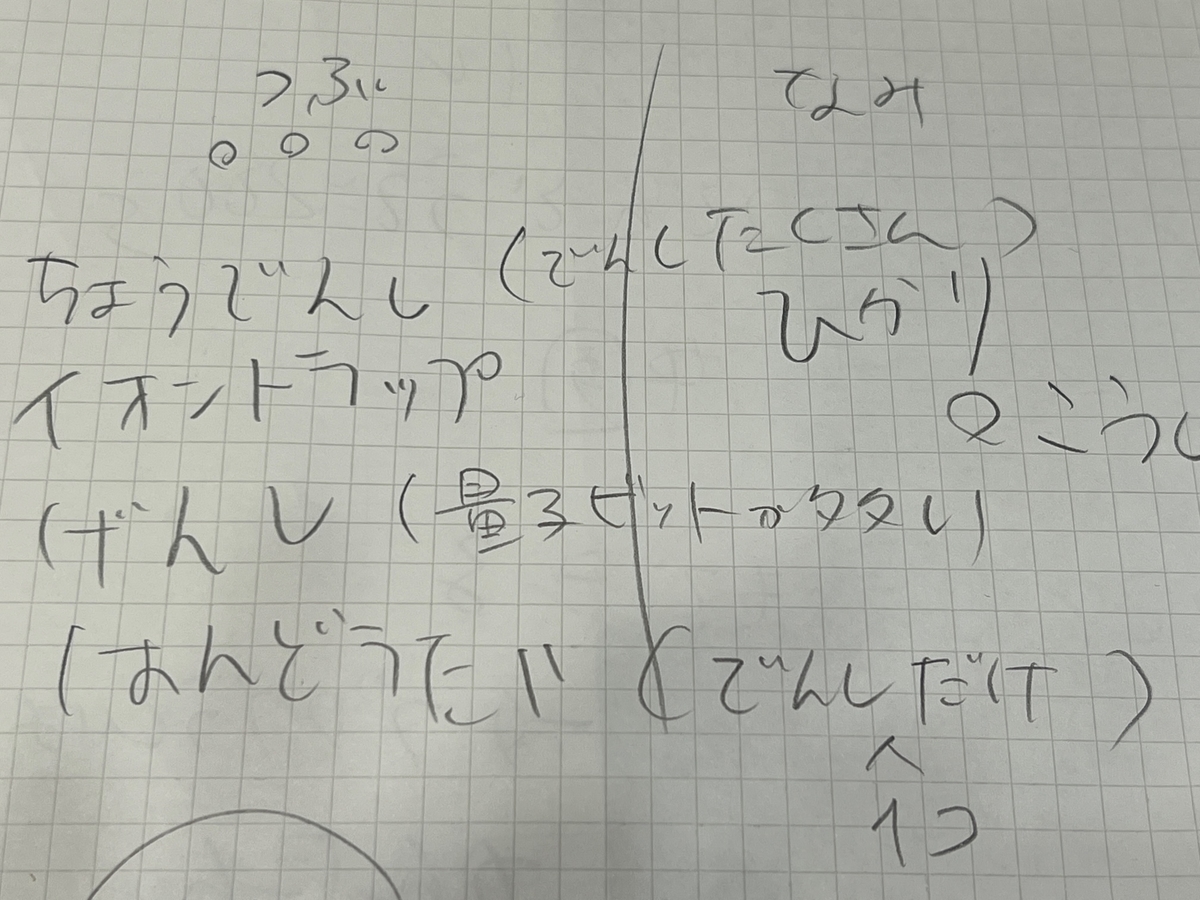 つぶ なみ
ちょうでんし (でんしたくさん)
ひかり
イオントラップ
のこうし
げんし (量子ビットがタタい)
はんどうたい (でんしだけ)
へ
1コ